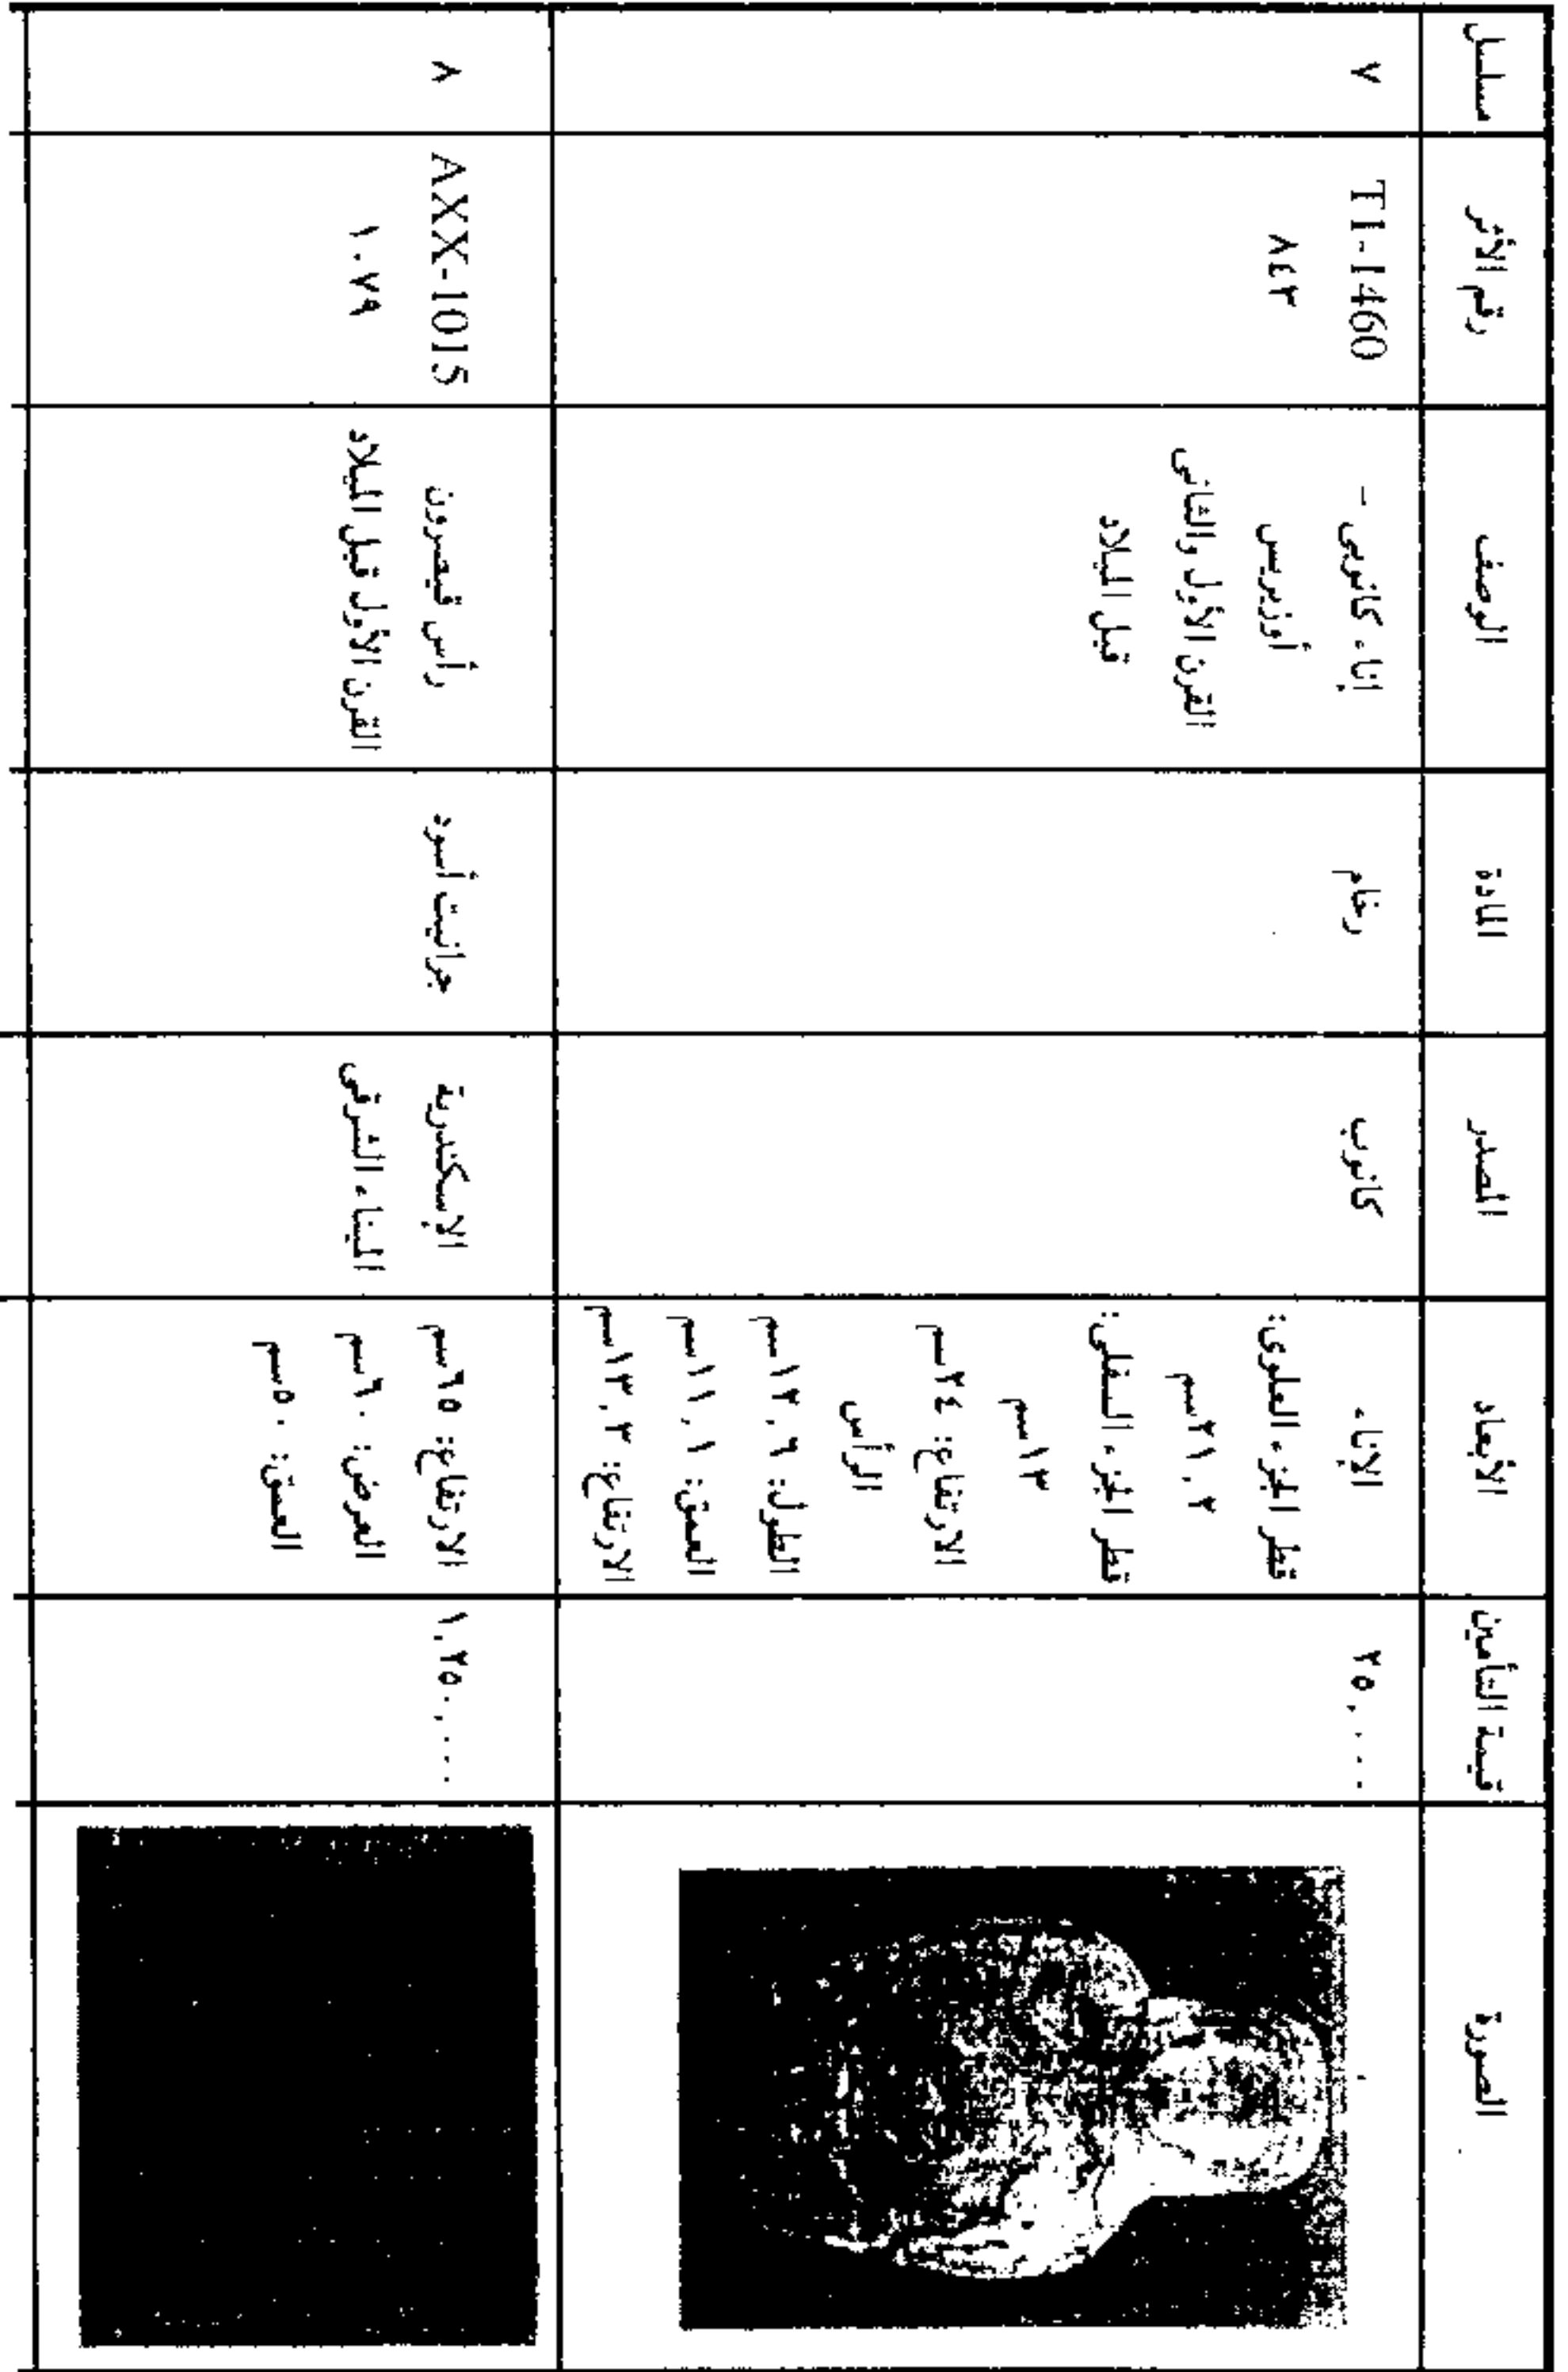 مسلسل
رقم الأثر
الوصف
المادة
المصدر
الأبعاد
قيمة التأمين
الصورة
٧
T1-1460
٨٤٣
إناء كانوبى -
أوزيريس
القرن الأول والثانى
قبل الميلاد
رخام
كانوب
الإناء
قطر الجزء العلوى:
٢١,٢سم
قطر الجزء السفلى:
١٣سم
الارتفاع: ٢٤سم
الرأس
الطول: ١٢,٦سم
العمق: ١١,١سم
الارتفاع: ١٣,٣سم
٢٥,٠٠٠
٨
AXX-1015
١٠٧٩
رأس قيصرون
القرن الأول قبل الميلاد
جرانيت أسود
الإسكندرية
الميناء الشرقى
الارتفاع: ٦٥سم
العرض: ٦٠سم
العمق: ٥٠سم
١,٢٥٠,٠٠٠